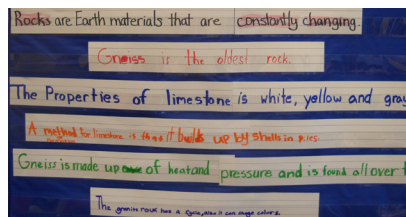 Rocks are Earth materials that are constantly changing.
Gneiss is the oldest rock.
The Properties of limestone is white, yellow and gray
A method for limestone is that it builds up by shells in
Gneiss is made up of heat and pressure and is found all over
The granite rock has a cycle, also it can change colors.